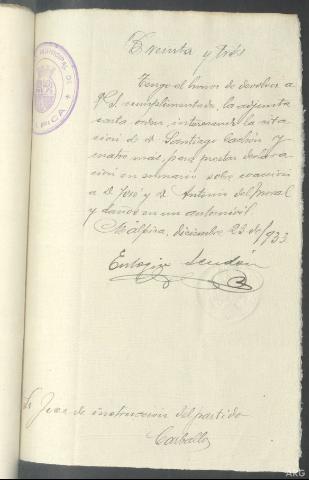 Treinta y trés
Tengo el honor de devolver a
V.S. cumplimentada, la adjunta
carta orden, interesando la cita
ción de D. Santiago y
cuatro mas, para prestar declara
ción en sumario sobre coacción
a D. José y D. Antonio del Moral
y daños en un automóvil
Malpica, diciembre 23 de 1933.
Sr. Juez de instrucción del partido
Carballo
ARG